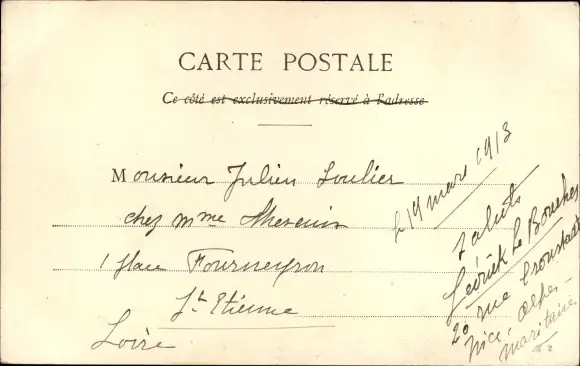 CARTE POSTALE
Ce côté est exclusivement réservé à l'adresse
Monsieur Julien Soulier
chez mme Thevenin
1 place Fourneyron
St Etienne
Loire
Le 19 mars 1913
Saluts
Le Boucher
20 rue Cronstadt
Nice. Alpes-
maritaines